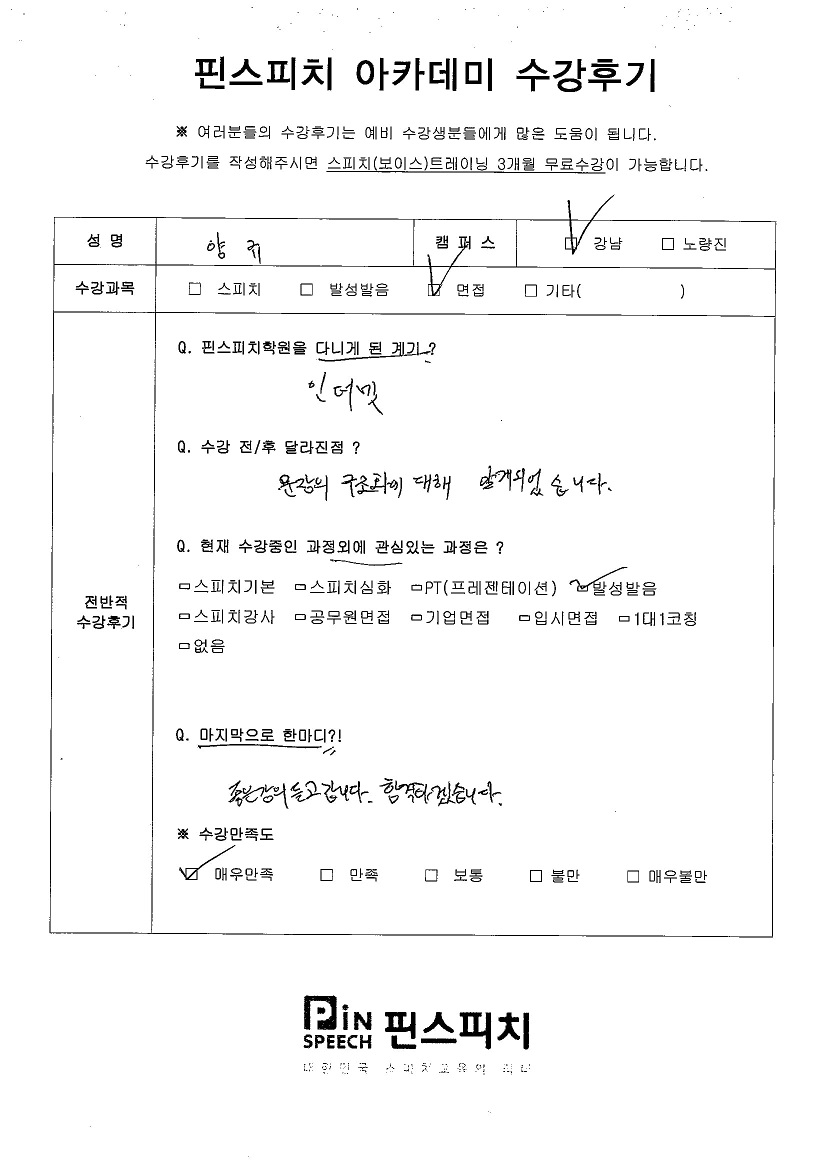 핀스피치 아카데미 수강후기
※ 여러분들의 수강후기는 예비 수강생분들에게 많은 도움이 됩니다.
수강후기를 작성해주시면 스피치(보이스)트레이닝 3개월 무료수강이 가능합니다.
성 명 양 귀 캠 퍼 스 ☑ 강남 □ 노량진
수강과목 □ 스피치 □ 발성발음 ☑ 면접 □ 기타( )
Q. 핀스피치학원을 다니게 된 계기 ?
인터넷
Q. 수강 전/후 달라진점 ?
문장의 구조화에 대해 알게되었습니다.
Q. 현재 수강중인 과정외에 관심있는 과정은 ?
□스피치기본 □스피치심화 □PT(프레젠테이션) ☑발성발음
전반적
수강후기
□스피치강사 □공무원면접 □기업면접 □입시면접 □1대1코칭
□없음
Q. 마지막으로 한마디?!
좋은강의듣고갑니다. 합격하겠습니다.
※ 수강만족도
☑ 매우만족 □ 만족 □ 보통 □ 불만 □ 매우불만
PiN
SPEECH 핀스피치
대한민국 스피치교육의 리더